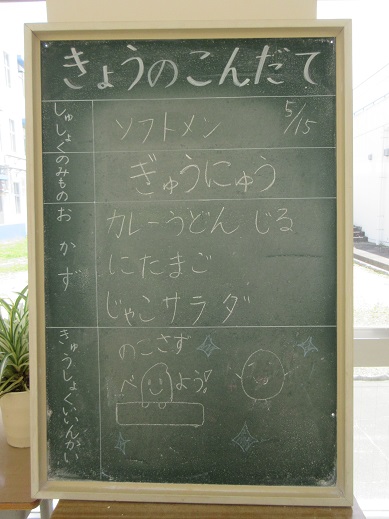 きょうのこんだて
5/15
しゅしょく ソフトメン
のみもの ぎゅうにゅう
おかず カレーうどんじる
にたまご
じゃこサラダ
きゅうしょくいいんかい
のこさず
べようね!